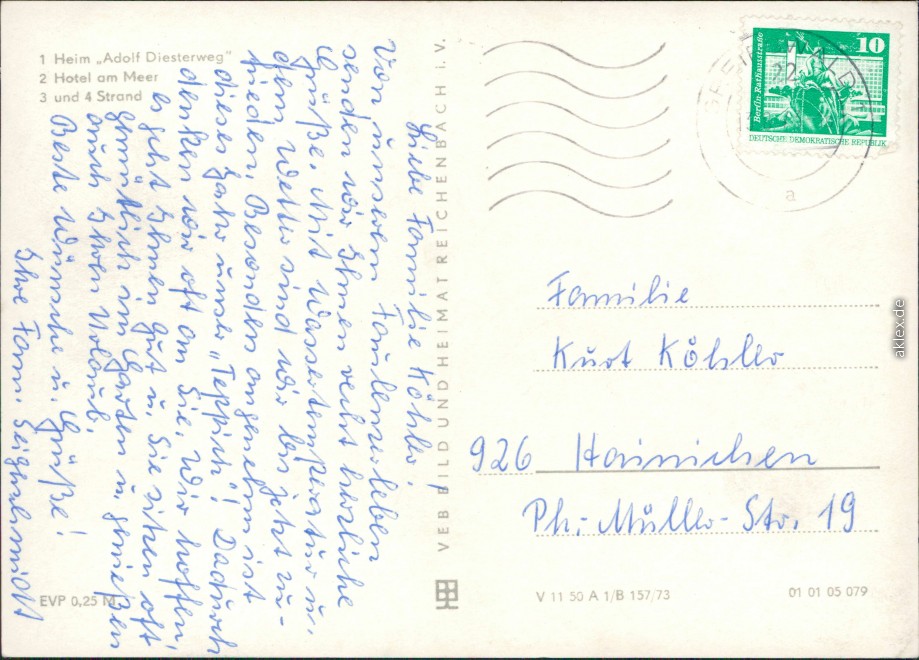 1 Heim „Adolf Diesterweg"
2 Hotel am Meer
3 und 4 Strand
Liebe Familie Köhler,
Von unserem Faulenzerleben
senden wir Ihnen recht herzliche
Grüße. Mit Wassertemperatur u.
dem Wetter sind wir bis jetzt zu-
frieden. Besonders angenehm ist
dieses Jahr unser „Teppich"! Dadurch
denken wir oft an Sie. Wir hoffen,
es geht Ihnen gut u. Sie sitzen oft
gemütlich im Garten u. genießen
auch Ihren Urlaub.
Beste Wünsche u. Grüße!
Ihre Fam.
EVP 0,25 M
VEB BILD UND HEIMAT REICHENBACH i. V.
10
Berlin-Rathausstraße
DEUTSCHE DEMOKRATISCHE REPUBLIK
a
Familie
Kurt Köhler
926 Hainichen
Ph.-Müller-Str. 19
V 11 50 A 1/B 157/73
01 01 05 079
aklex.de